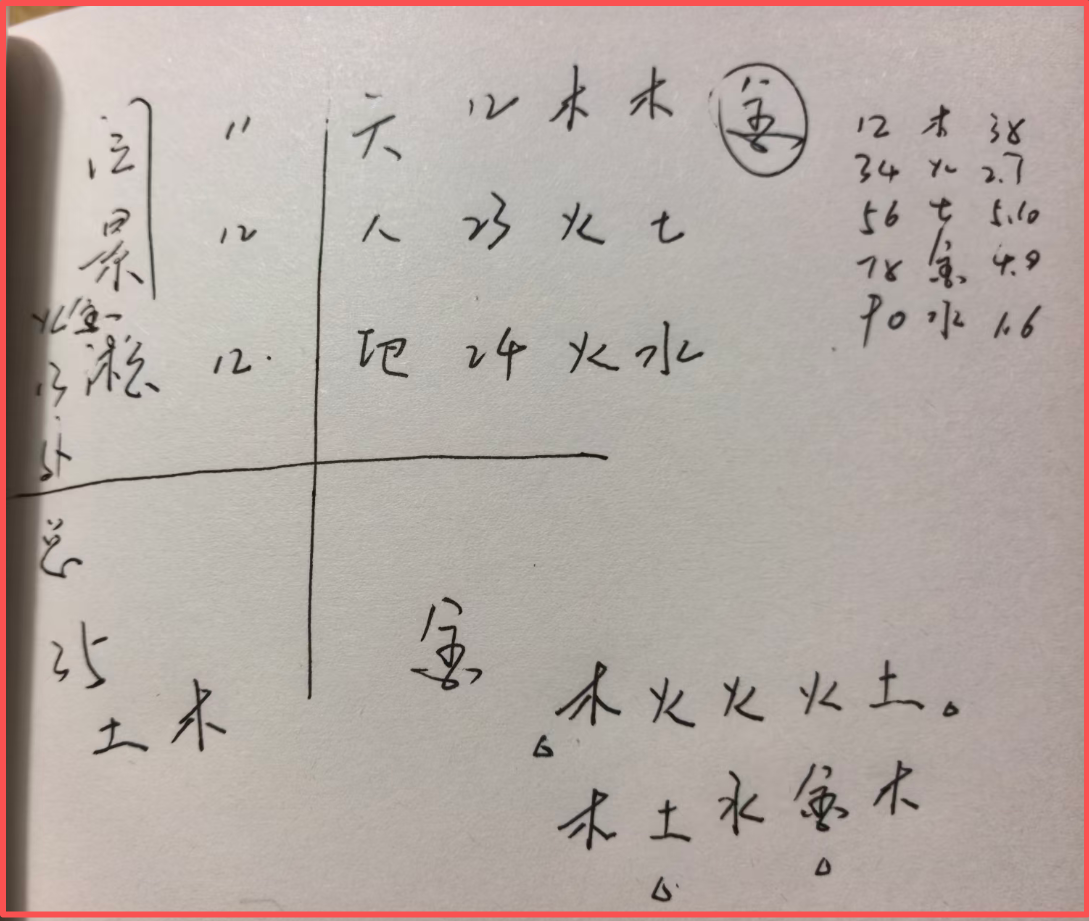 天 12 木 木 金
12 木 38
34 火 2.7
56 土 5.10
78 金 4.9
90 水 1.6
景 12 人 23 火 土
火金
13 12. 地 24 火 水
外
总
35
土 木
金
木 火 火 火 土
木 土 水 金 木